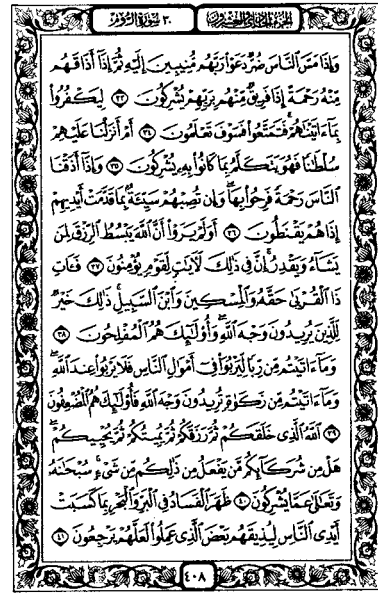 الجزء الحادي والعشرون
٣٠ سورة الروم
وَإِذَا مَسَّ ٱلنَّاسَ ضُرٌّ دَعَوْا۟ رَبَّهُم مُّنِيبِينَ إِلَيْهِ ثُمَّ إِذَآ أَذَاقَهُم
مِّنْهُ رَحْمَةً إِذَا فَرِيقٌ مِّنْهُم بِرَبِّهِمْ يُشْرِكُونَ ٣٣ لِيَكْفُرُوا۟
بِمَآ ءَاتَيْنَٰهُمْ فَتَمَتَّعُوا۟ فَسَوْفَ تَعْلَمُونَ ٣٤ أَمْ أَنزَلْنَا عَلَيْهِمْ
سُلْطَٰنًا فَهُوَ يَتَكَلَّمُ بِمَا كَانُوا۟ بِهِۦ يُشْرِكُونَ ٣٥ وَإِذَآ أَذَقْنَا
ٱلنَّاسَ رَحْمَةً فَرِحُوا۟ بِهَا وَإِن تُصِبْهُمْ سَيِّئَةٌۢ بِمَا قَدَّمَتْ أَيْدِيهِمْ
إِذَا هُمْ يَقْنَطُونَ ٣٦ أَوَلَمْ يَرَوْا۟ أَنَّ ٱللَّهَ يَبْسُطُ ٱلرِّزْقَ لِمَن
يَشَآءُ وَيَقْدِرُ إِنَّ فِى ذَٰلِكَ لَءَايَٰتٍ لِّقَوْمٍ يُؤْمِنُونَ ٣٧ فَـَٔاتِ
ذَا ٱلْقُرْبَىٰ حَقَّهُۥ وَٱلْمِسْكِينَ وَٱبْنَ ٱلسَّبِيلِ ذَٰلِكَ خَيْرٌ
لِّلَّذِينَ يُرِيدُونَ وَجْهَ ٱللَّهِ وَأُو۟لَٰٓئِكَ هُمُ ٱلْمُفْلِحُونَ ٣٨
وَمَآ ءَاتَيْتُم مِّن رِّبًا لِّيَرْبُوَا۟ فِىٓ أَمْوَٰلِ ٱلنَّاسِ فَلَا يَرْبُوا۟ عِندَ ٱللَّهِ
وَمَآ ءَاتَيْتُم مِّن زَكَوٰةٍ تُرِيدُونَ وَجْهَ ٱللَّهِ فَأُو۟لَٰٓئِكَ هُمُ ٱلْمُضْعِفُونَ
٣٩ ٱللَّهُ ٱلَّذِى خَلَقَكُمْ ثُمَّ رَزَقَكُمْ ثُمَّ يُمِيتُكُمْ ثُمَّ يُحْيِيكُمْ
هَلْ مِن شُرَكَآئِكُم مَّن يَفْعَلُ مِن ذَٰلِكُم مِّن شَىْءٍ سُبْحَٰنَهُۥ
وَتَعَٰلَىٰ عَمَّا يُشْرِكُونَ ٤٠ ظَهَرَ ٱلْفَسَادُ فِى ٱلْبَرِّ وَٱلْبَحْرِ بِمَا كَسَبَتْ
أَيْدِى ٱلنَّاسِ لِيُذِيقَهُم بَعْضَ ٱلَّذِى عَمِلُوا۟ لَعَلَّهُمْ يَرْجِعُونَ ٤١
٤٠٨